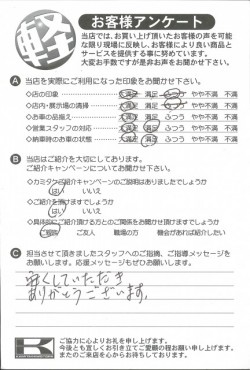 軽
お客様アンケート
当店では、お買い上げ頂いたお客様の声を可能
な限り現場に反映し、お客様により良い商品と
サービスを提供する事に努めています。
大変お手数ですが是非お声をお聞かせ下さい。
A 当店を実際にご利用になった印象をお聞かせ下さい。
◇店の印象 大満足 満足 ふつう やや不満 不満
◇店内・展示場の清掃 大満足 満足 ふつう やや不満 不満
◇お車の品揃え 大満足 満足 ふつう やや不満 不満
◇営業スタッフの対応 大満足 満足 ふつう やや不満 不満
◇納車時のお車の状態 大満足 満足 ふつう やや不満 不満
B 当店はご紹介を大切にしております。
ご紹介キャンペーンについてお聞かせ下さい。
◇カミタケご紹介キャンペーンのご説明はありましたでしょうか
はい いいえ
◇ご紹介を頂けますでしょうか
はい いいえ
◇具体的にご紹介頂ける方とのご関係をお聞かせ頂けますでしょうか
ご親戚 ご友人 職場の方 機会があれば紹介したい
C 担当させて頂きましたスタッフへのご指摘、ご指導メッセージを
お願いします。応援メッセージもぜひお願いします。
安くしていただき
ありがとうございます。
ご協力に心よりお礼を申し上げます。
今後とも宜しくお引き立てご愛顧の程お願い申し上げます。
またのご来店を心からお待ちしております。